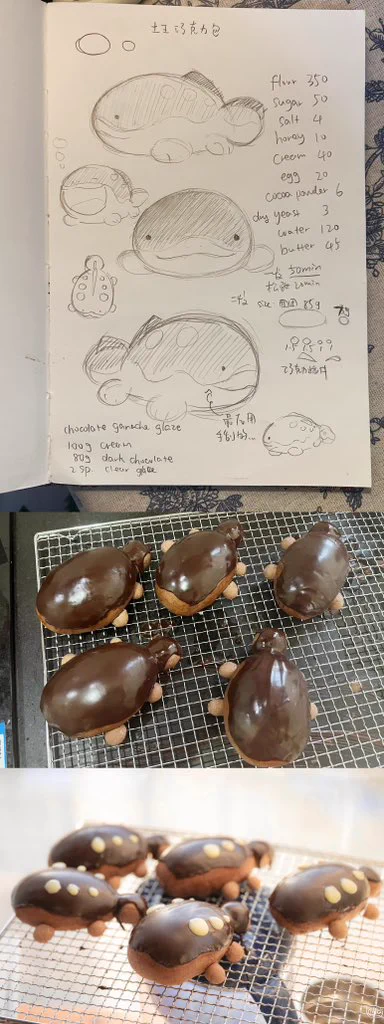 土王巧克力包
flour 350
sugar 50
salt 4
honey 10
cream 40
egg 20
cocoa powder 6
dry yeast 3
water 120
butter 45
一发 50min
松弛 20min
二发
size 85g
巧克力
chocolate ganache glaze
100g cream
80g dark chocolate
2 sp. clear glaze
最后用